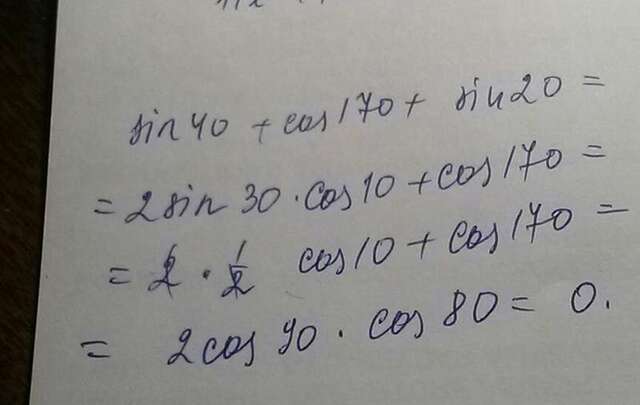 sin 40 + cos 170 + sin 20 =
= 2 sin 30 · cos 10 + cos 170 =
= 2 · 1/2 cos 10 + cos 170 =
= 2 cos 90 · cos 80 = 0.